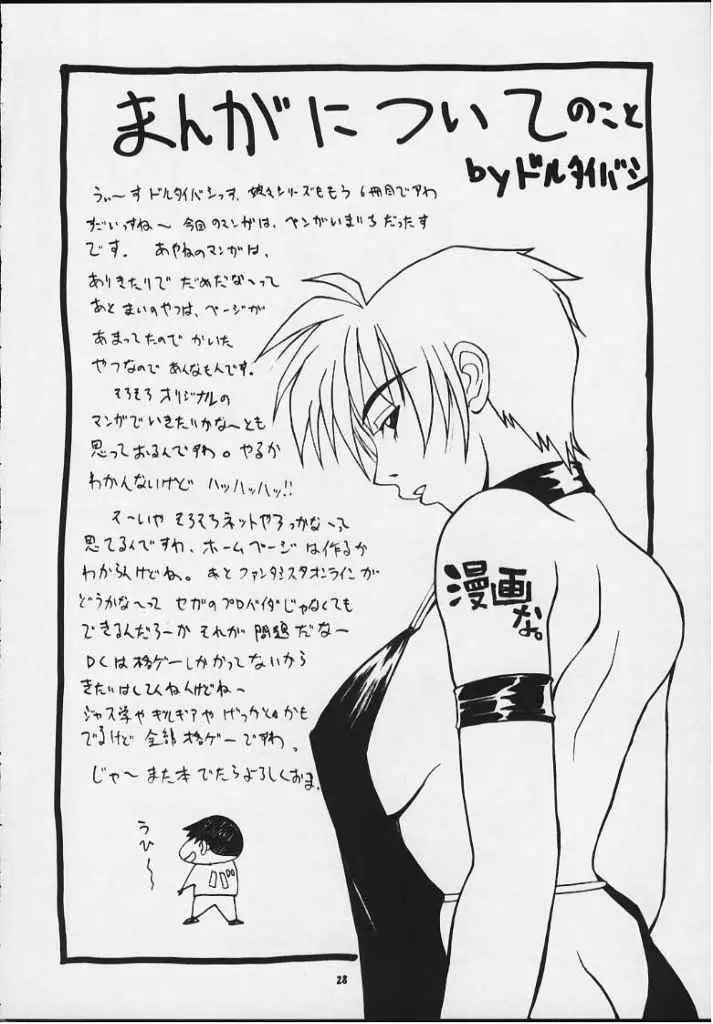 まんがについてのこと
byドルタイバシ
うぃ〜すドルタイバシっす、燃えシリーズももう6冊目ですわ
すごいっすね〜今回のマンガは、ペンがいまいちだったす
です。 あやねのマンガは、
ありきたりで だめだな〜って
あと まいのやつは、ページが
あまってたので かいた
やつなので あんなもんです。
そろそろ オリジナルの
マンガでいきたいかな〜とも
思っておるんですわ。やるか
わかんないけど ハッハッハッ!!
そ〜いや そろそろネットやろっかな〜って
思てるんですわ、ホームページは作るか
わからんけどね。あと ファンタシスタオンラインが
どうかな〜って セガのプロバイダじゃなくても
できるんだろーか それが 問題だな〜
DCは格ゲーしかかってないから
きたいはしてんねんけどね〜
ジャス学や ギルギアや げっかとかも
でるけど 全部 格ゲーですわ。
じゃ〜 また本 でたらよろしくおま。
うひ〜〜
漫画
な。
28